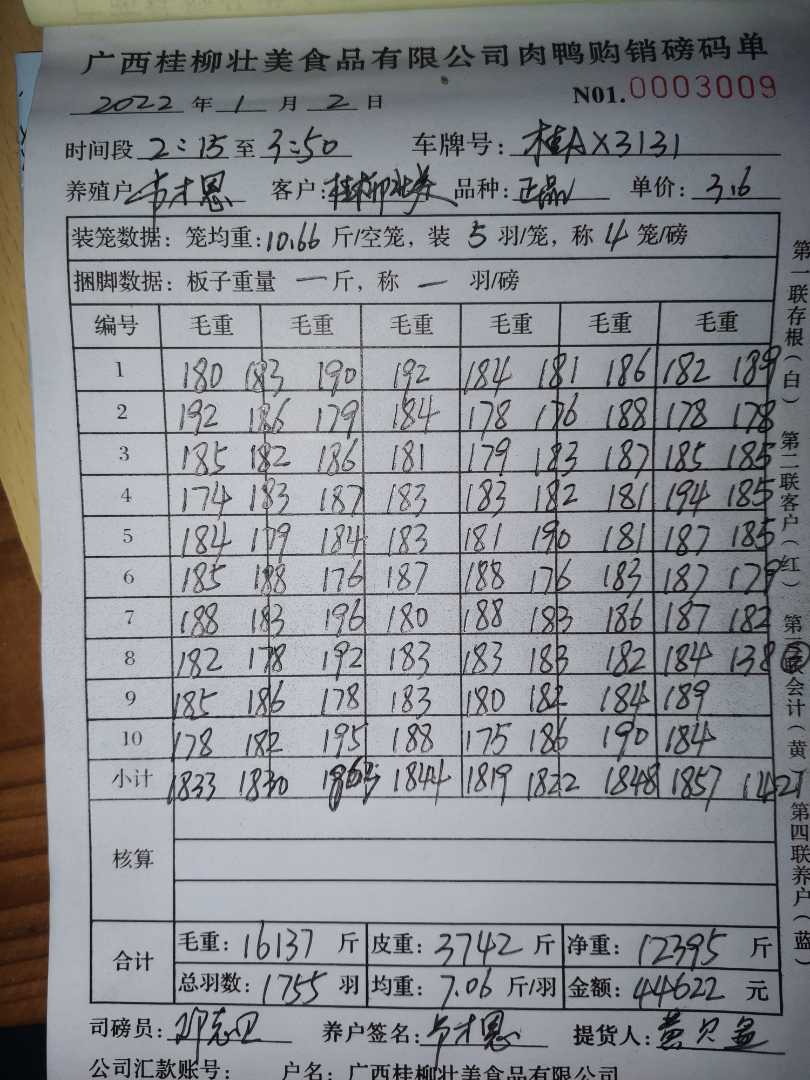 广西桂柳壮美食品有限公司肉鸭购销磅码单
2022 年 1 月 2 日 N01.0003009
时间段 2:15 至 3:50 车牌号: 桂AX3131
养殖户 韦才恩 客户: 桂柳壮美 品种: 正品 单价: 3.6
装笼数据: 笼均重: 10.66 斤/空笼, 装 5 羽/笼, 称 4 笼/磅
捆脚数据: 板子重量 一 斤, 称 一 羽/磅
编号 毛重 毛重 毛重 毛重 毛重 毛重
1 180 183 190 192 184 181 186 182 189
2 192 186 179 184 178 176 188 178 178
3 185 182 186 181 179 183 187 185 185
4 174 183 187 183 183 182 181 194 185
5 184 179 184 183 181 190 181 187 185
6 185 188 176 187 188 176 183 187 179
7 188 183 196 180 188 183 186 187 182
8 182 178 192 183 183 183 182 184 138
9 185 186 178 183 180 182 184 189
10 178 182 195 188 175 186 190 184
小计 1833 1830 1863 1844 1819 1822 1848 1857 1421
核算
合计 毛重: 16137 斤 皮重: 3742 斤 净重: 12395 斤
总羽数: 1755 羽 均重: 7.06 斤/羽 金额: 44622 元
司磅员: 邓志卫 养户签名: 韦才恩 提货人: 黄
公司汇款账号: 户名: 广西桂柳壮美食品有限公司
第一联存根(白) 第二联客户(红) 第三联会计(黄) 第四联养户(蓝)